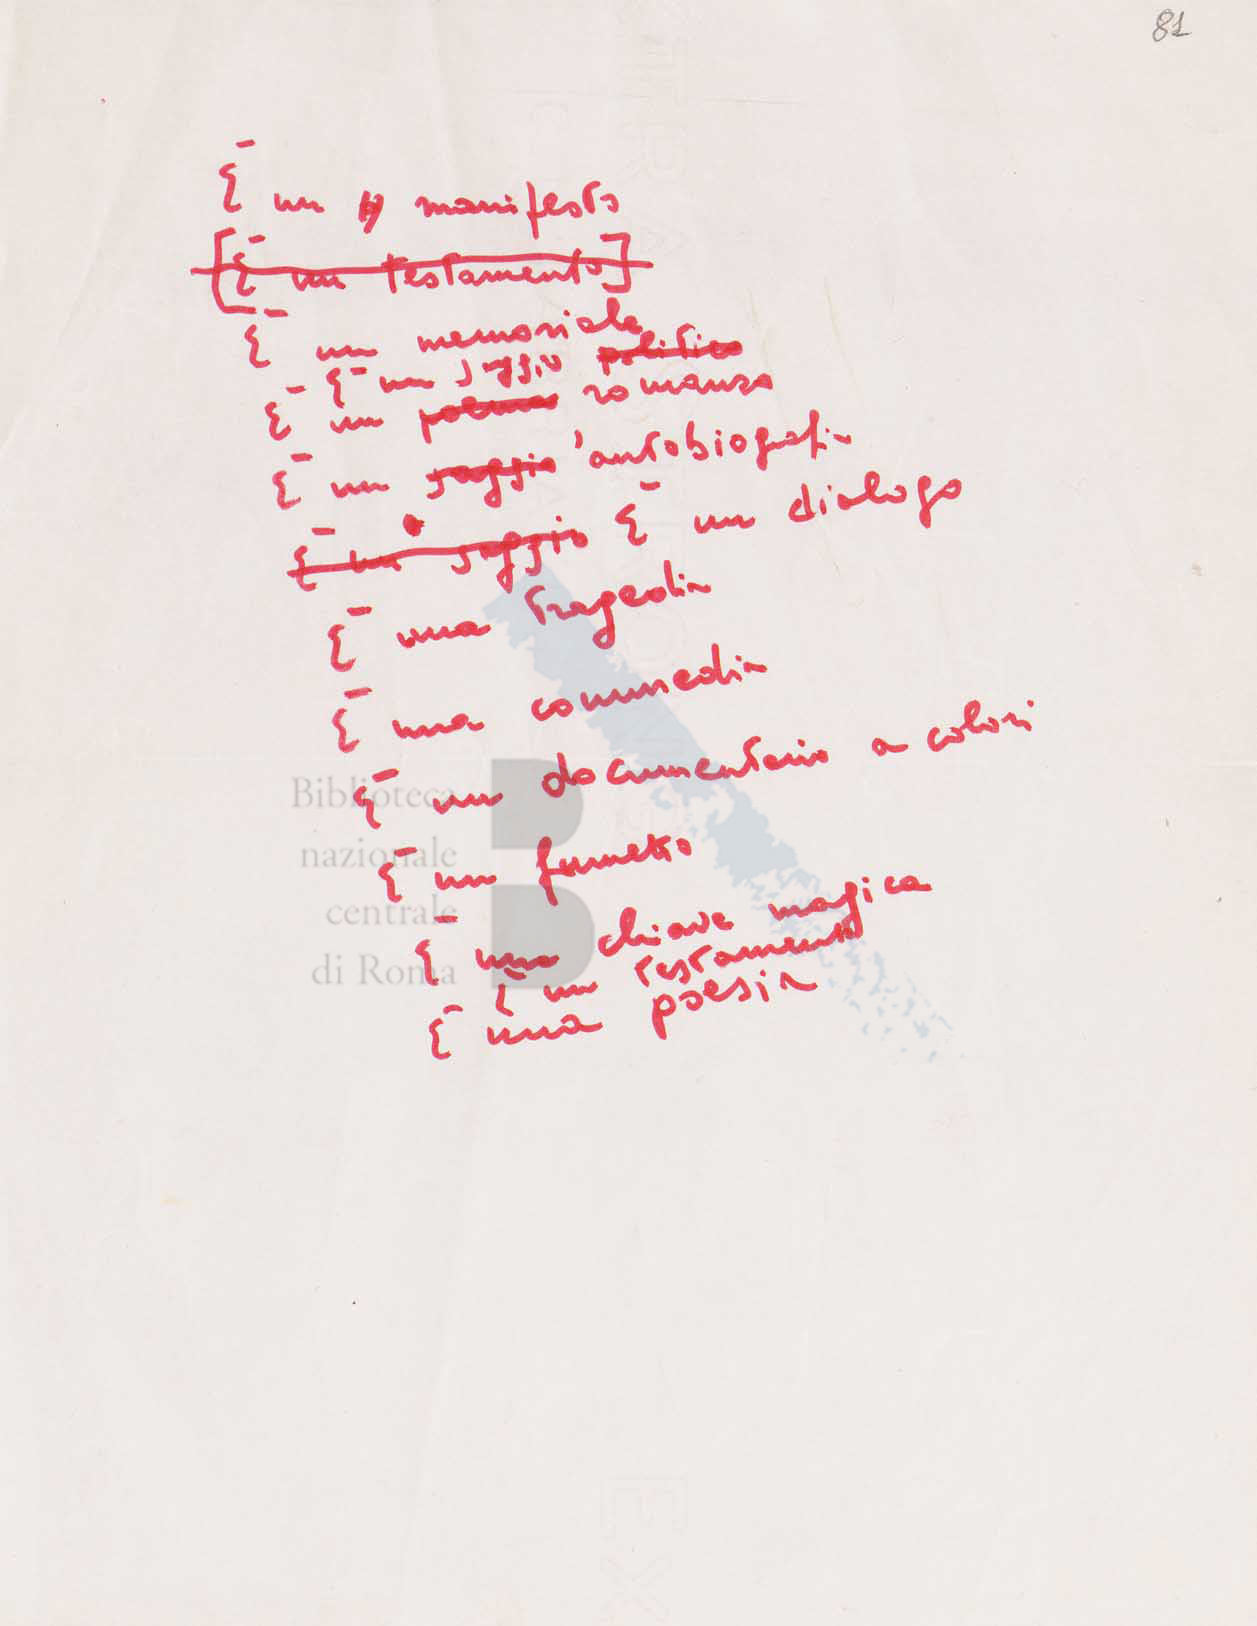 81
È un manifesto
[È un testamento]
È un memoriale
È un saggio politico
È un poema romanzo
È un saggio 'autobiografia
È un saggio È un dialogo
È una tragedia
È una commedia
È un documentario a colori
È un fumetto
È una chiave magica
È un testamento
È una poesia
Biblioteca
nazionale
centrale
di Roma